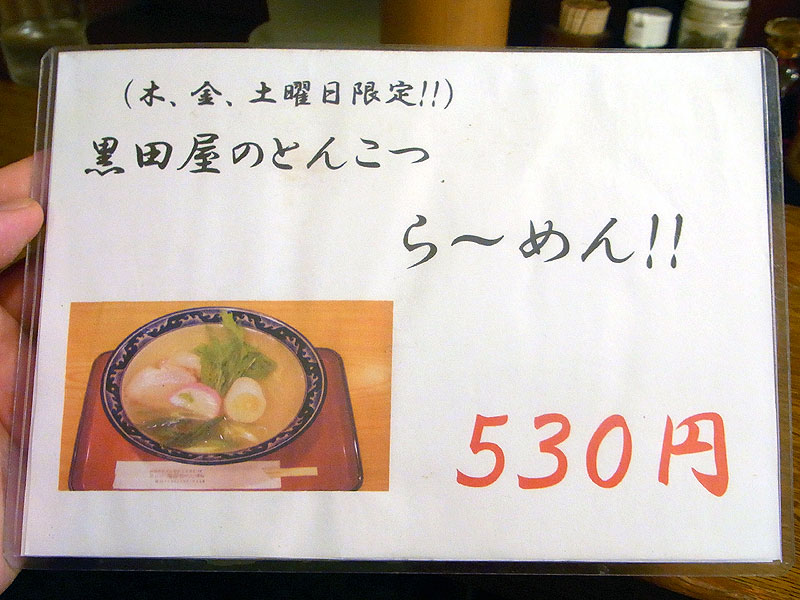 (木、金、土曜日限定!!)
黒田屋のとんこつ
ら〜めん!!
530円